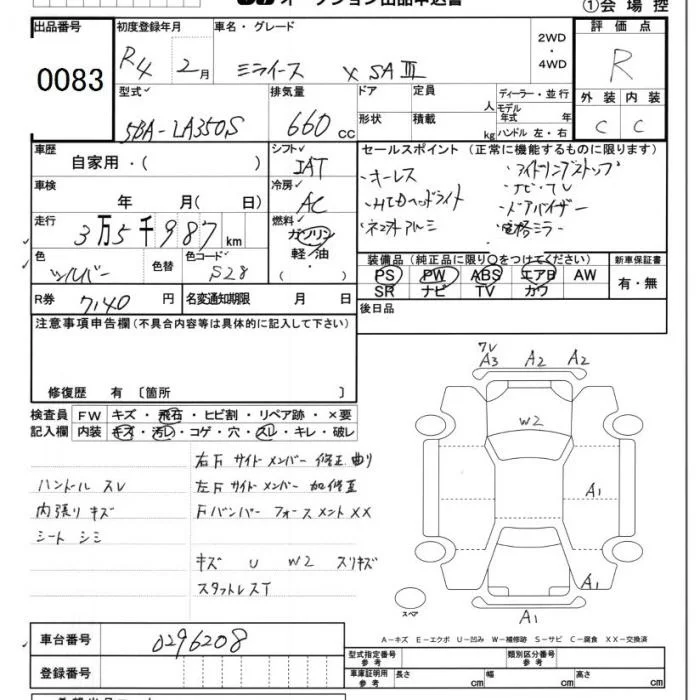 オークション出品申込書
①会場控
出品番号
0083
初度登録年月
R4 2月
車名・グレード
ミライース X SAⅢ
2WD
・
4WD
評価点
R
型式
5BA-LA350S
排気量
660 cc
ドア
定員
人
ディーラー・並行
モデル年式 年
形状
積載
kg
ハンドル 左・右
外装 内装
C C
車歴
自家用・( )
シフト
IAT
セールスポイント (正常に機能するものに限ります)
・キーレス
・アイドリングストップ
・ナビ・TV
・HIDヘッドライト
・ドアバイザー
・ネオホトアルミ
・電格ミラー
車検
年 月( 日)
冷房
AC
走行
3万5千987 km
燃料
ガソリン
軽油
・
( )
色
シルバー
色替
色コード
S28
装備品 (純正品に限り○をつけてください)
PS PW ABS エアB AW
SR ナビ TV カワ
新車保証書
有・無
R券 7,140 円
名変通知期限 月 日
後日品
注意事項申告欄 (不具合内容等は具体的に記入して下さい)
修復歴 有 〔箇所 〕
検査員 FW キズ・飛石・ヒビ割・リペア跡・×要
記入欄 内装 キズ・汚レ・コゲ・穴・スレ・キレ・破レ
右F サイドメンバー 修正 曲り
ハンドル スレ
左F サイドメンバー 加修正
内張り キズ
Fバンパー フォースメント XX
シート シミ
キズ U W2 スリキズ
スタットレスT
ワレ
A3 A2 A2
W2
A1
A1
A1
スペア
A-キズ E-エクボ U-凹み W-補修跡 S-サビ C-腐食 XX-交換済
車台番号 0296208
登録番号
型式指定番号 参考
類別区分番号 参考
車庫証明用 参考
長さ cm
幅 cm
高さ cm